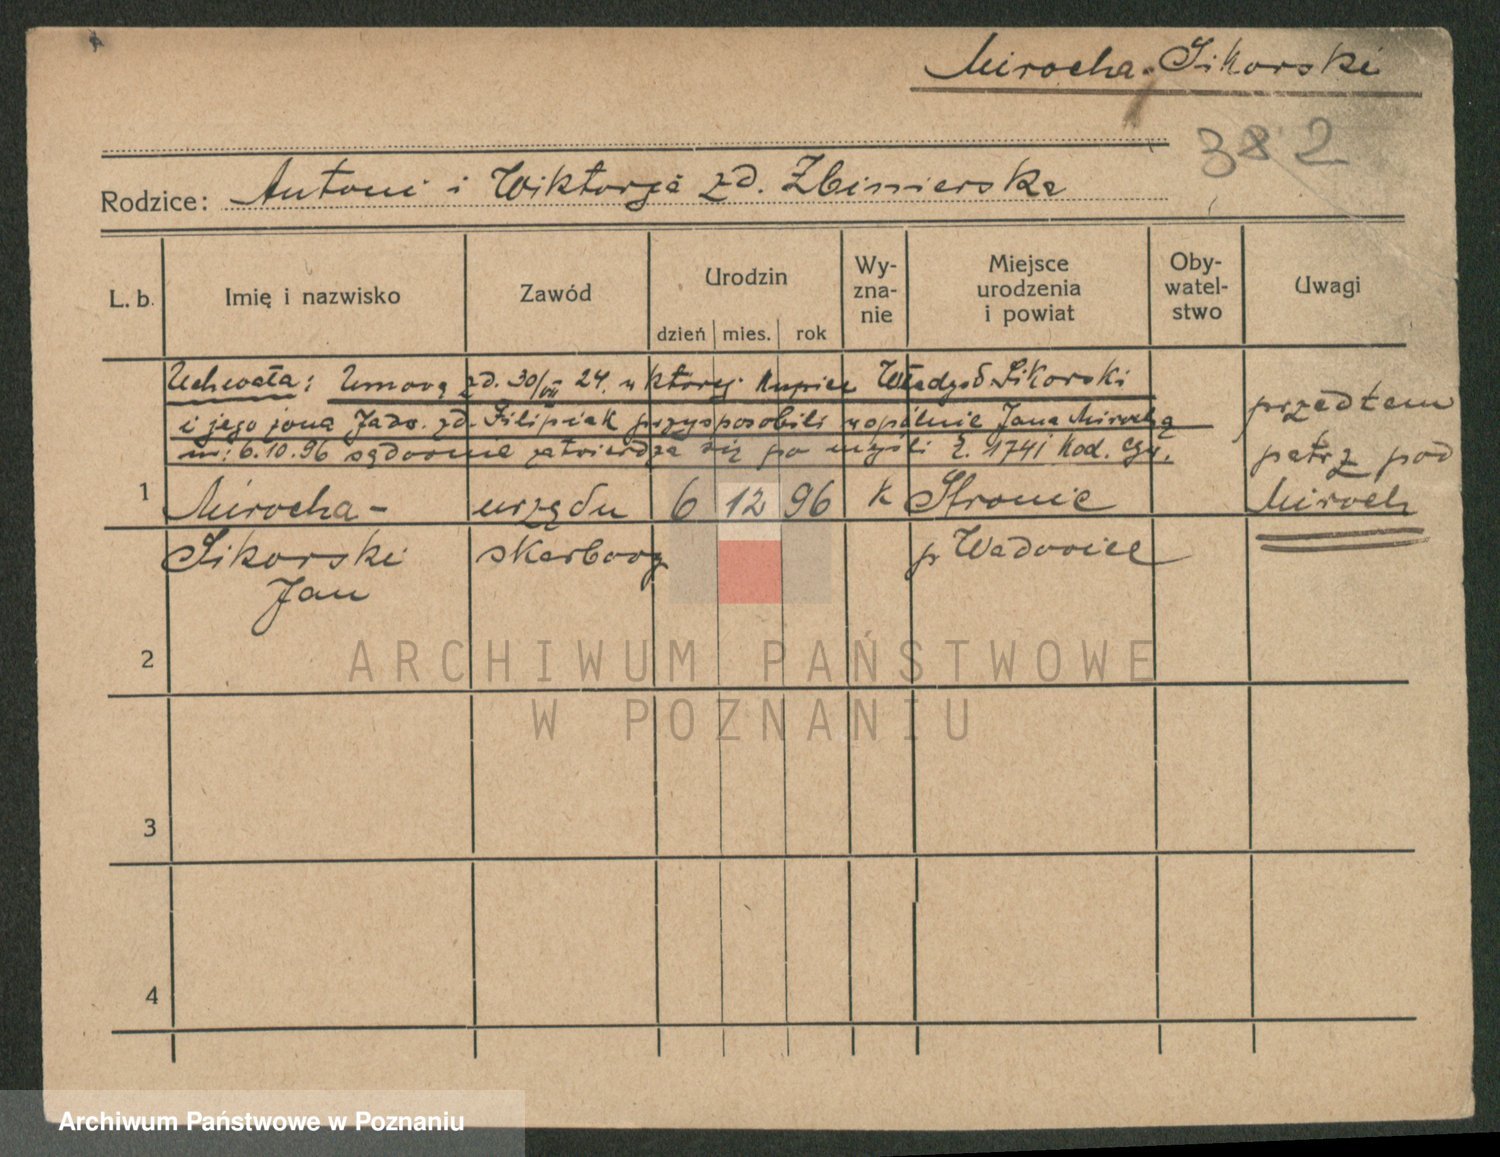 Mirocha-Sikorski
382
Rodzice: Antoni i Wiktorja zd. Zbimierska
L. b. Imię i nazwisko Zawód Urodzin Wy-zna-nie Miejsce urodzenia i powiat Oby-watel-stwo Uwagi
dzień mies. rok
Uchwała: Umowę zd. 30/VII 24. w której kupiec Władysł. Sikorski
i jego żona Jadw. zd. Filipiak przysposobili wspólnie Jana Mirochę
ur: 6.10.96 sądownie zatwierdza się po myśli § 1741 kod. cyw.
przedtem
patrz pod
Miroch
1 Mirocha- urzędn 6 12 96 k Stronie
Sikorski skarbowy p Wadowice
Jan
2
3
4
ARCHIWUM PAŃSTWOWE
W POZNANIU
Archiwum Państwowe w Poznaniu